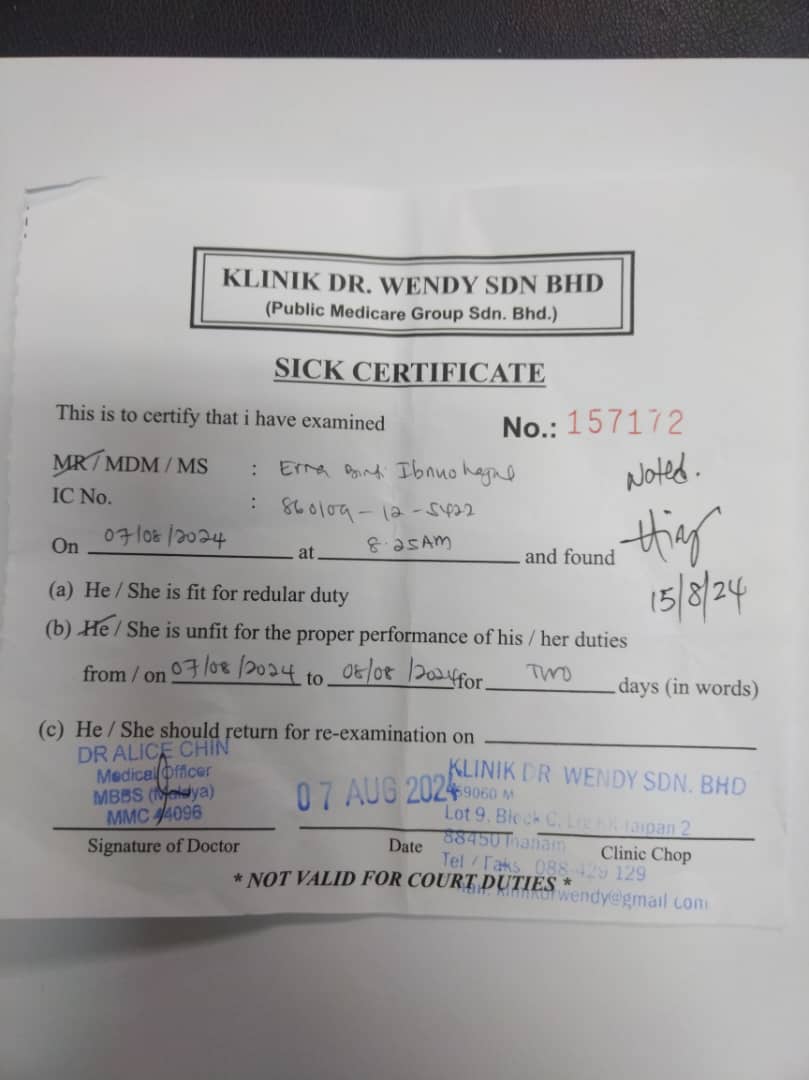 KLINIK DR. WENDY SDN BHD
(Public Medicare Group Sdn. Bhd.)
SICK CERTIFICATE
This is to certify that i have examined
No.: 157172
MR / MDM / MS :
Noted.
IC No. : 860109-12-5422
On 07/08/2024 at 8.25AM and found
15/8/24
(a) He / She is fit for redular duty
(b) He / She is unfit for the proper performance of his / her duties
from / on 07/08/2024 to 08/08/2024 for TWO days (in words)
(c) He / She should return for re-examination on
DR ALICE CHIN
Medical Officer
MBBS (Malaya)
MMC 44096
07 AUG 2024
KLINIK DR WENDY SDN. BHD
Lot 9, Block C,
88450 Inanam
Tel / Faks 088-429 129
Signature of Doctor
Date
Clinic Chop
* NOT VALID FOR COURT DUTIES *